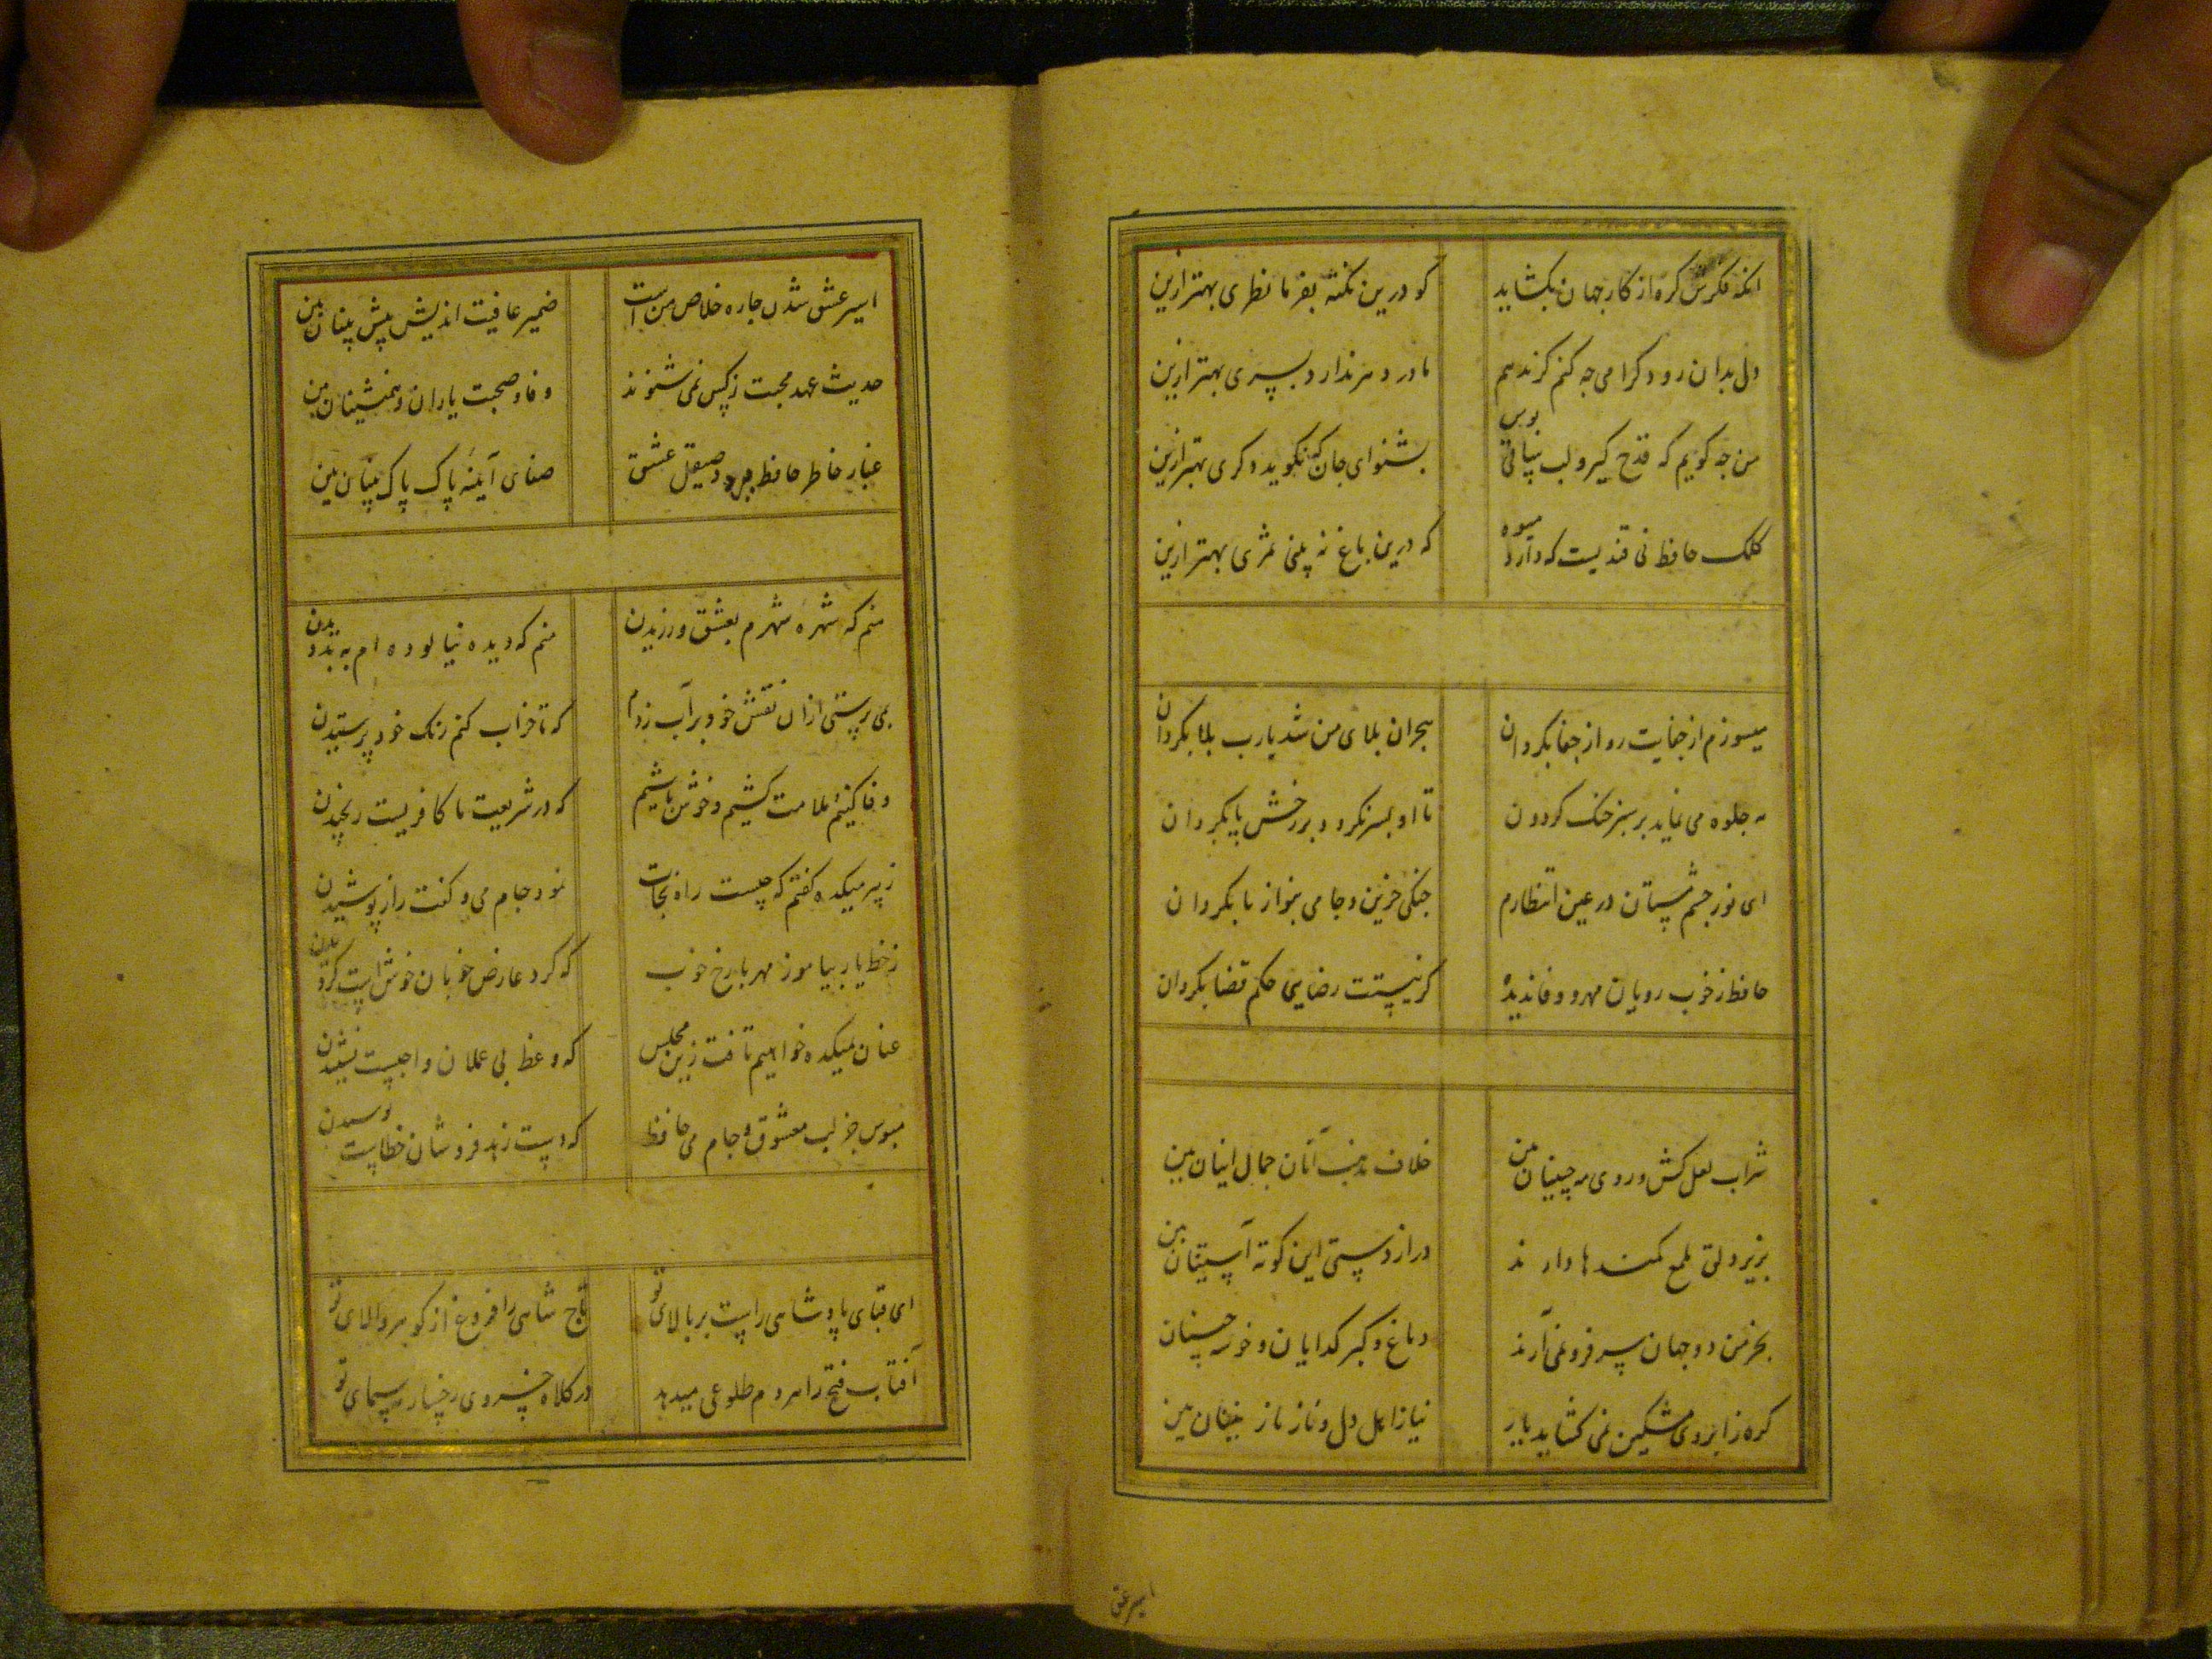 انکه فکرش کره از کار جهان بکشاید کو درین نکته بفرما نظری بهتر ازین
دل بدان رود کرامی چه کنم کر ندهم مادر دهر ندارد پسری بهتر ازین
من چه کویم که قدح کیر و لب ساقی بوس بشنو ای جان که نکوید دکری بهتر ازین
کلک حافظ نی قندیست که دارد میوه که درین باغ نه بینی ثمری بهتر ازین
میسوزم از جفایت رو از جفا بکردان هجران بلای من شد یارب بلا بکردان
مه جلوه می نماید بر سبز خنک کردون تا او بسر نکردد بر رخش پا بکردان
ای نور چشم مستان در عین انتظارم چنکی حزین و جامی بنواز یا بکردان
حافظ ز خوب رویان مهر و وفا ندیده کر نیستت رضایی حکم قضا بکردان
شراب لعل کش و روی مه جبینان بین خلاف مذهب آنان جمال اینان بین
بزیر دلق ملمع کمندها دارند دراز دستی این کوته آستینان بین
بخرمن دو جهان سر فرو نمی آرند دماغ و کبر کدایان و خوشه چینان
کره ز ابروی مشکین نمی کشاید یار نیاز اهل دل و ناز نازنینان بین
اسیر عشق
اسیر عشق شدن چاره خلاص من است ضمیر عافیت اندیش پیش بینان بین
حدیث عهد محبت ز کس نمی شنوند وفا و صحبت یاران و همنشینان بین
غبار خاطر حافظ ببرد صیقل عشق صفای آینه پاک پاک بینان بین
منم که شهره شهرم بعشق ورزیدن منم که دیده نیالوده ام به بد دیدن
بمی پرستی از ان نقش خود بر آب زدم که تا خراب کنم رنک خود پرستیدن
وفا کنیم و ملامت کشیم و خوش باشیم که در شریعت ما کافریست رنجیدن
ز پیر میکده کفتم که چیست راه نجات نمود جام می و کفت راز پوشیدن
ز خط یار بیاموز مهر با رخ خوب که کرد عارض خوبان خوش است کردیدن
عنان میکده خواهیم تافت زین مجلس که وعظ بی عملان واجبست نشنیدن
مبوس جز لب معشوق و جام می حافظ که دست زهد فروشان خطاست بوسیدن
ای قبای پادشاهی راست بر بالای تو تاج شاهی را فروغ از کوهر والای تو
آفتاب فتح را هر دم طلوعی میدهد در کلاه خسروی رخسار مه سیمای تو